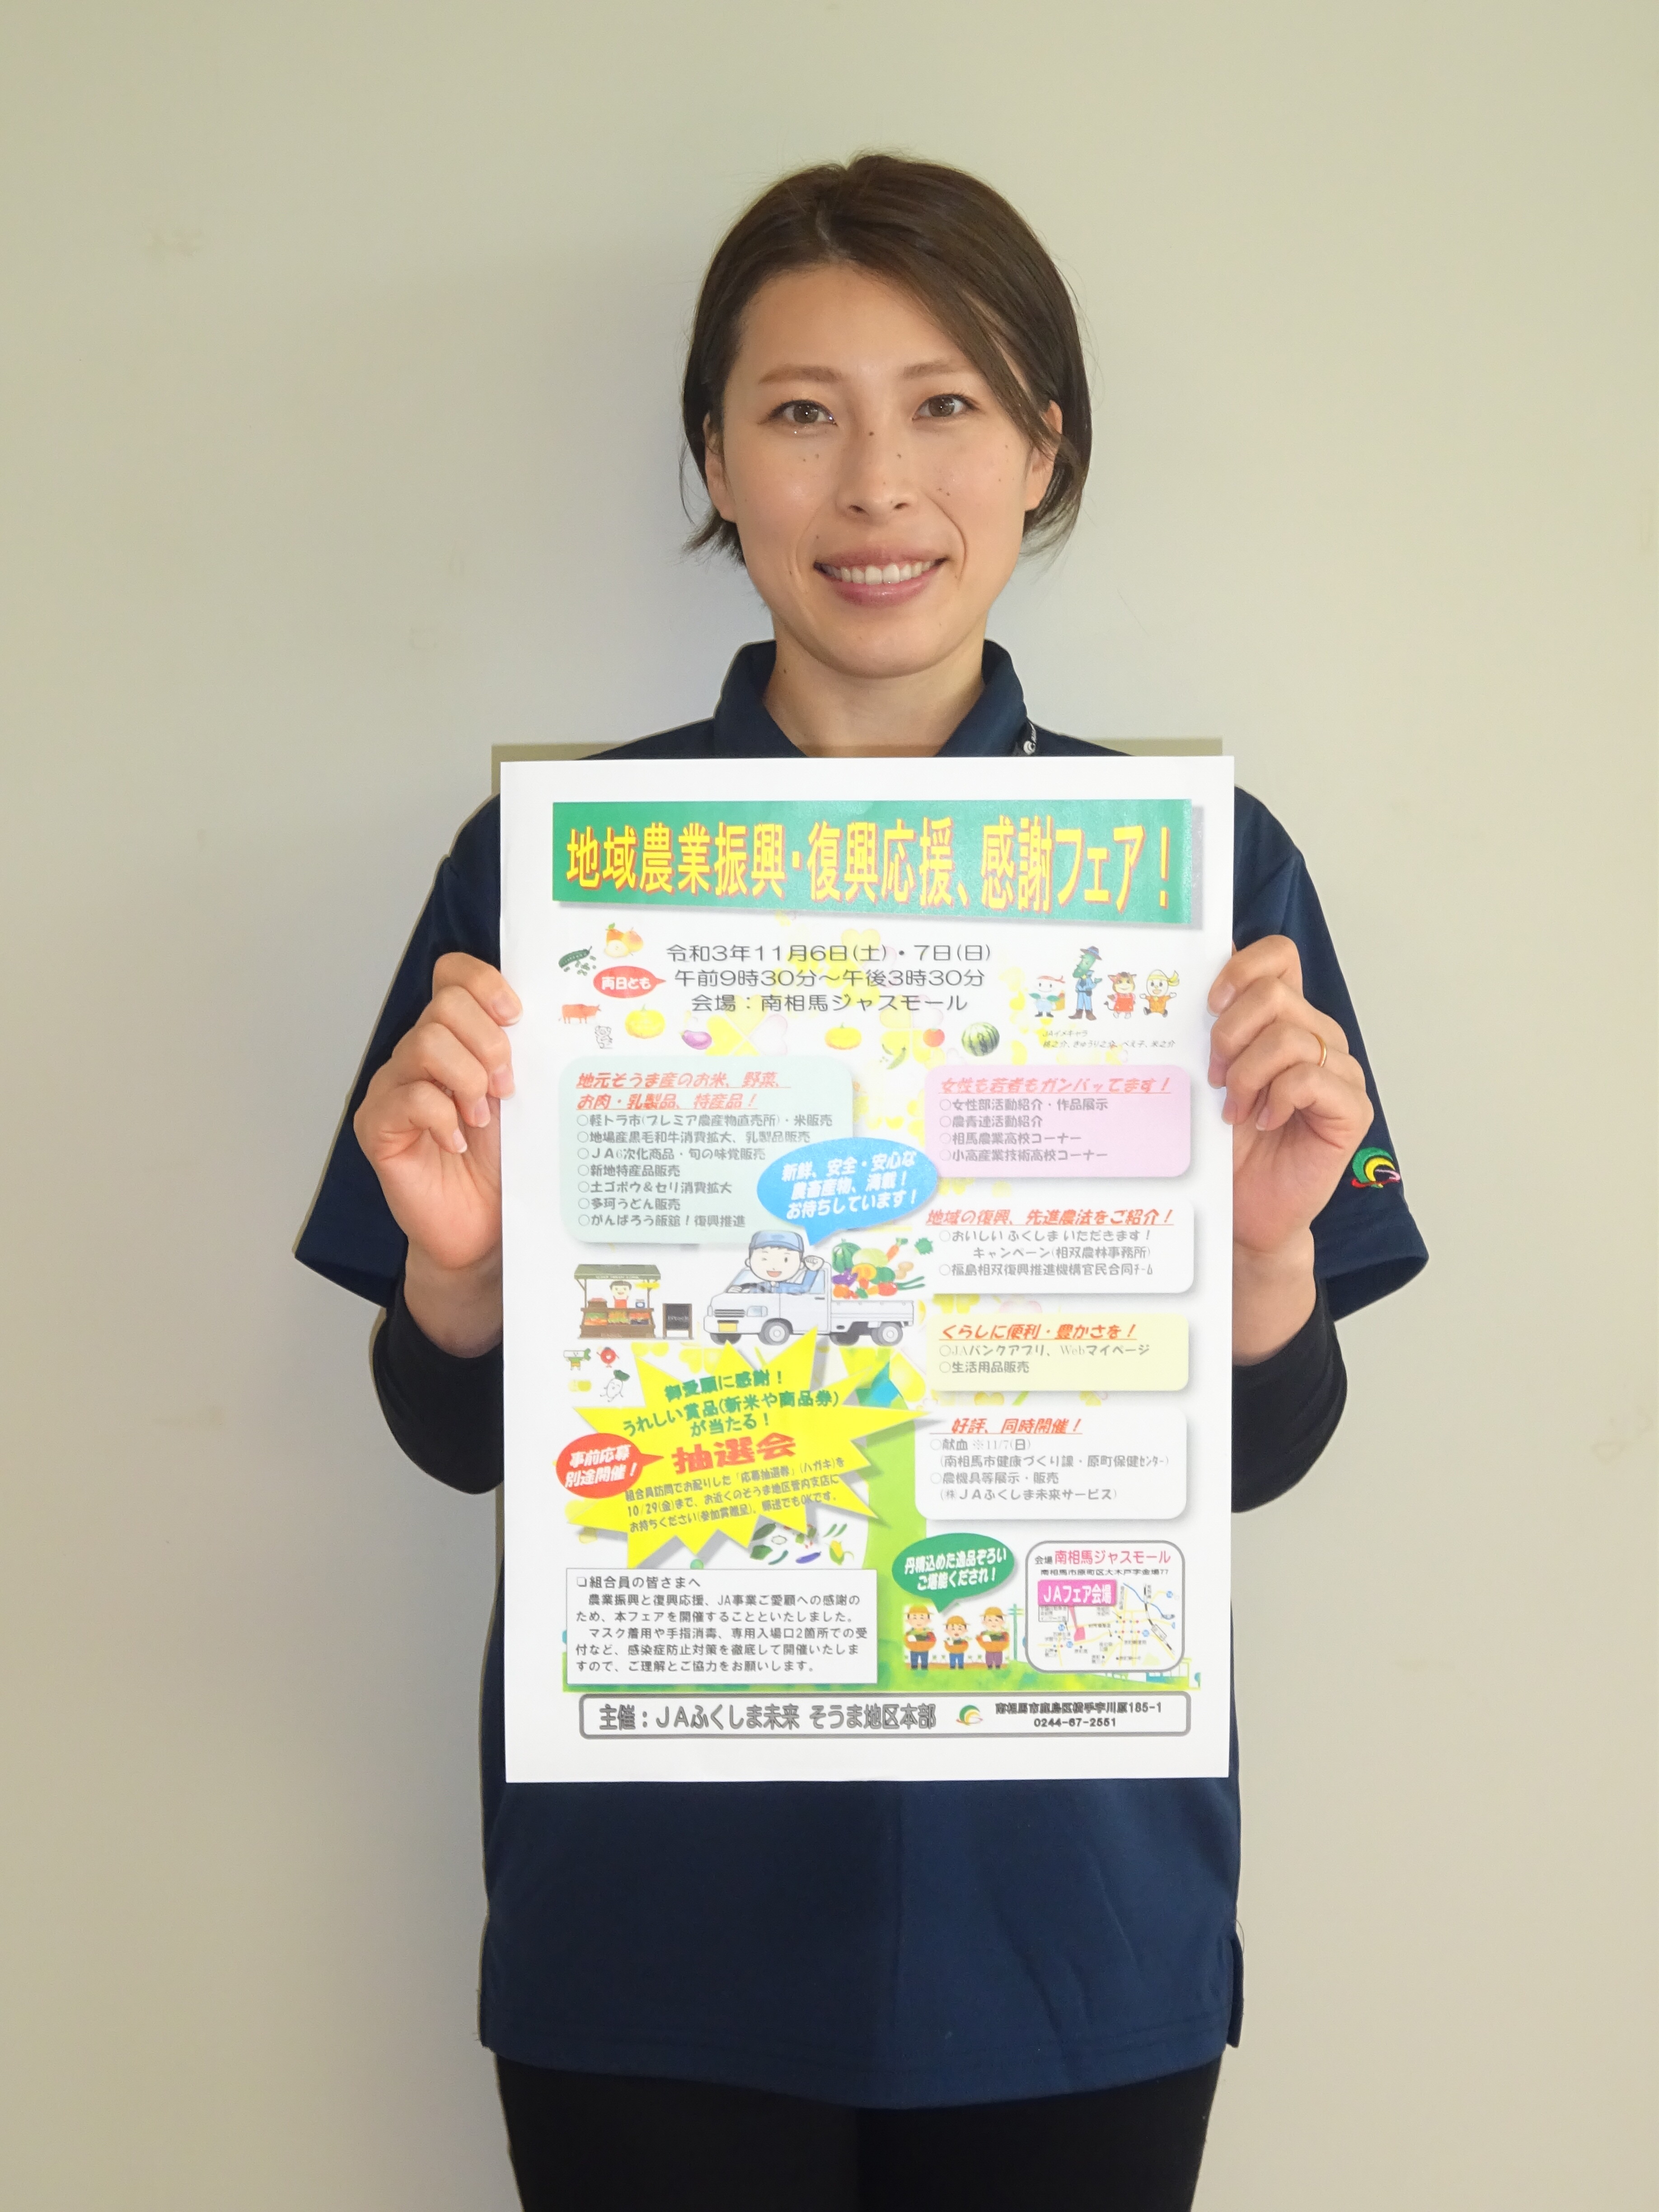 地域農業振興・復興応援、感謝フェア！
令和3年11月6日(土)・7日(日)
両日とも
午前9時30分～午後3時30分
会場：南相馬ジャスモール
JAイメキャラ
桃之介、きゅうり之介、べえ子、米之介
地元そうま産のお米、野菜、
お肉・乳製品、特産品！
○軽トラ市(プレミア農産物直売所)・米販売
○地場産黒毛和牛消費拡大、乳製品販売
○ＪＡ6次化商品・旬の味覚販売
○新地特産品販売
○土ゴボウ＆セリ消費拡大
○多珂うどん販売
○がんばろう飯舘！復興推進
新鮮、安全・安心な
農畜産物、満載！
お待ちしています！
女性も若者もガンバッてます！
○女性部活動紹介・作品展示
○農青連活動紹介
○相馬農業高校コーナー
○小高産業技術高校コーナー
地域の復興、先進農法をご紹介！
○おいしい ふくしま いただきます！
キャンペーン(相双農林事務所)
○福島相双復興推進機構官民合同ﾁｰﾑ
くらしに便利・豊かさを！
○JAバンクアプリ、Webマイページ
○生活用品販売
好評、同時開催！
○献血 ※11/7(日)
(南相馬市健康づくり課・原町保健ｾﾝﾀｰ)
○農機具等展示・販売
(㈱ＪＡふくしま未来サービス)
御愛顧に感謝！
うれしい賞品(新米や商品券)
が当たる！
抽選会
事前応募
別途開催！
組合員訪問でお配りした「応募抽選券」(ハガキ)を
10/29(金)まで、お近くのそうま地区管内支店に
お持ちください(参加賞贈呈)。郵送でもOKです。
丹精込めた逸品ぞろい
ご堪能くだされ！
会場 南相馬ジャスモール
南相馬市原町区大木戸字金場77
JAフェア会場
❏組合員の皆さまへ
農業振興と復興応援、JA事業ご愛顧への感謝の
ため、本フェアを開催することといたしました。
マスク着用や手指消毒、専用入場口2箇所での受
付など、感染症防止対策を徹底して開催いたしま
すので、ご理解とご協力をお願いします。
主催：ＪＡふくしま未来 そうま地区本部
南相馬市鹿島区横手字川原185-1
0244-67-2551